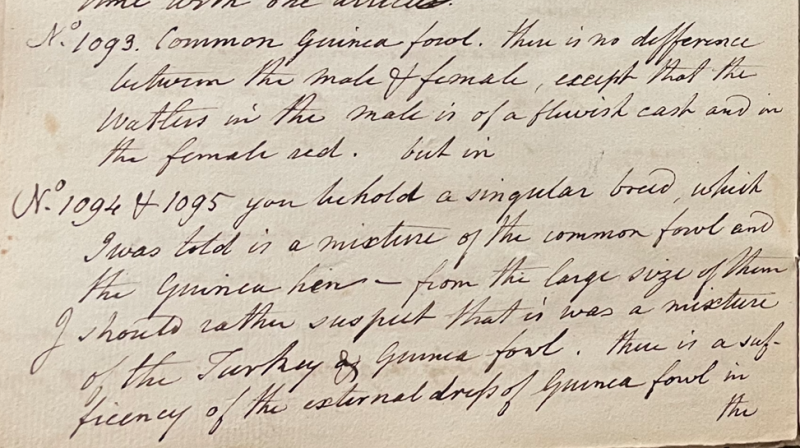 time with one article.
No. 1093. Common Guinea fowl. there is no difference
between the male & female, except that the
Wattles in the male is of a flewish cast and in
the female red. but in
No. 1094 & 1095 you behold a singular breed, which
I was told is a mixture of the common fowl and
the Guinea hen - from the large size of them
I should rather suspect that it was a mixture
of the Turkey & Guinea fowl. there is a suf-
ficency of the external dress of Guinea fowl in
the